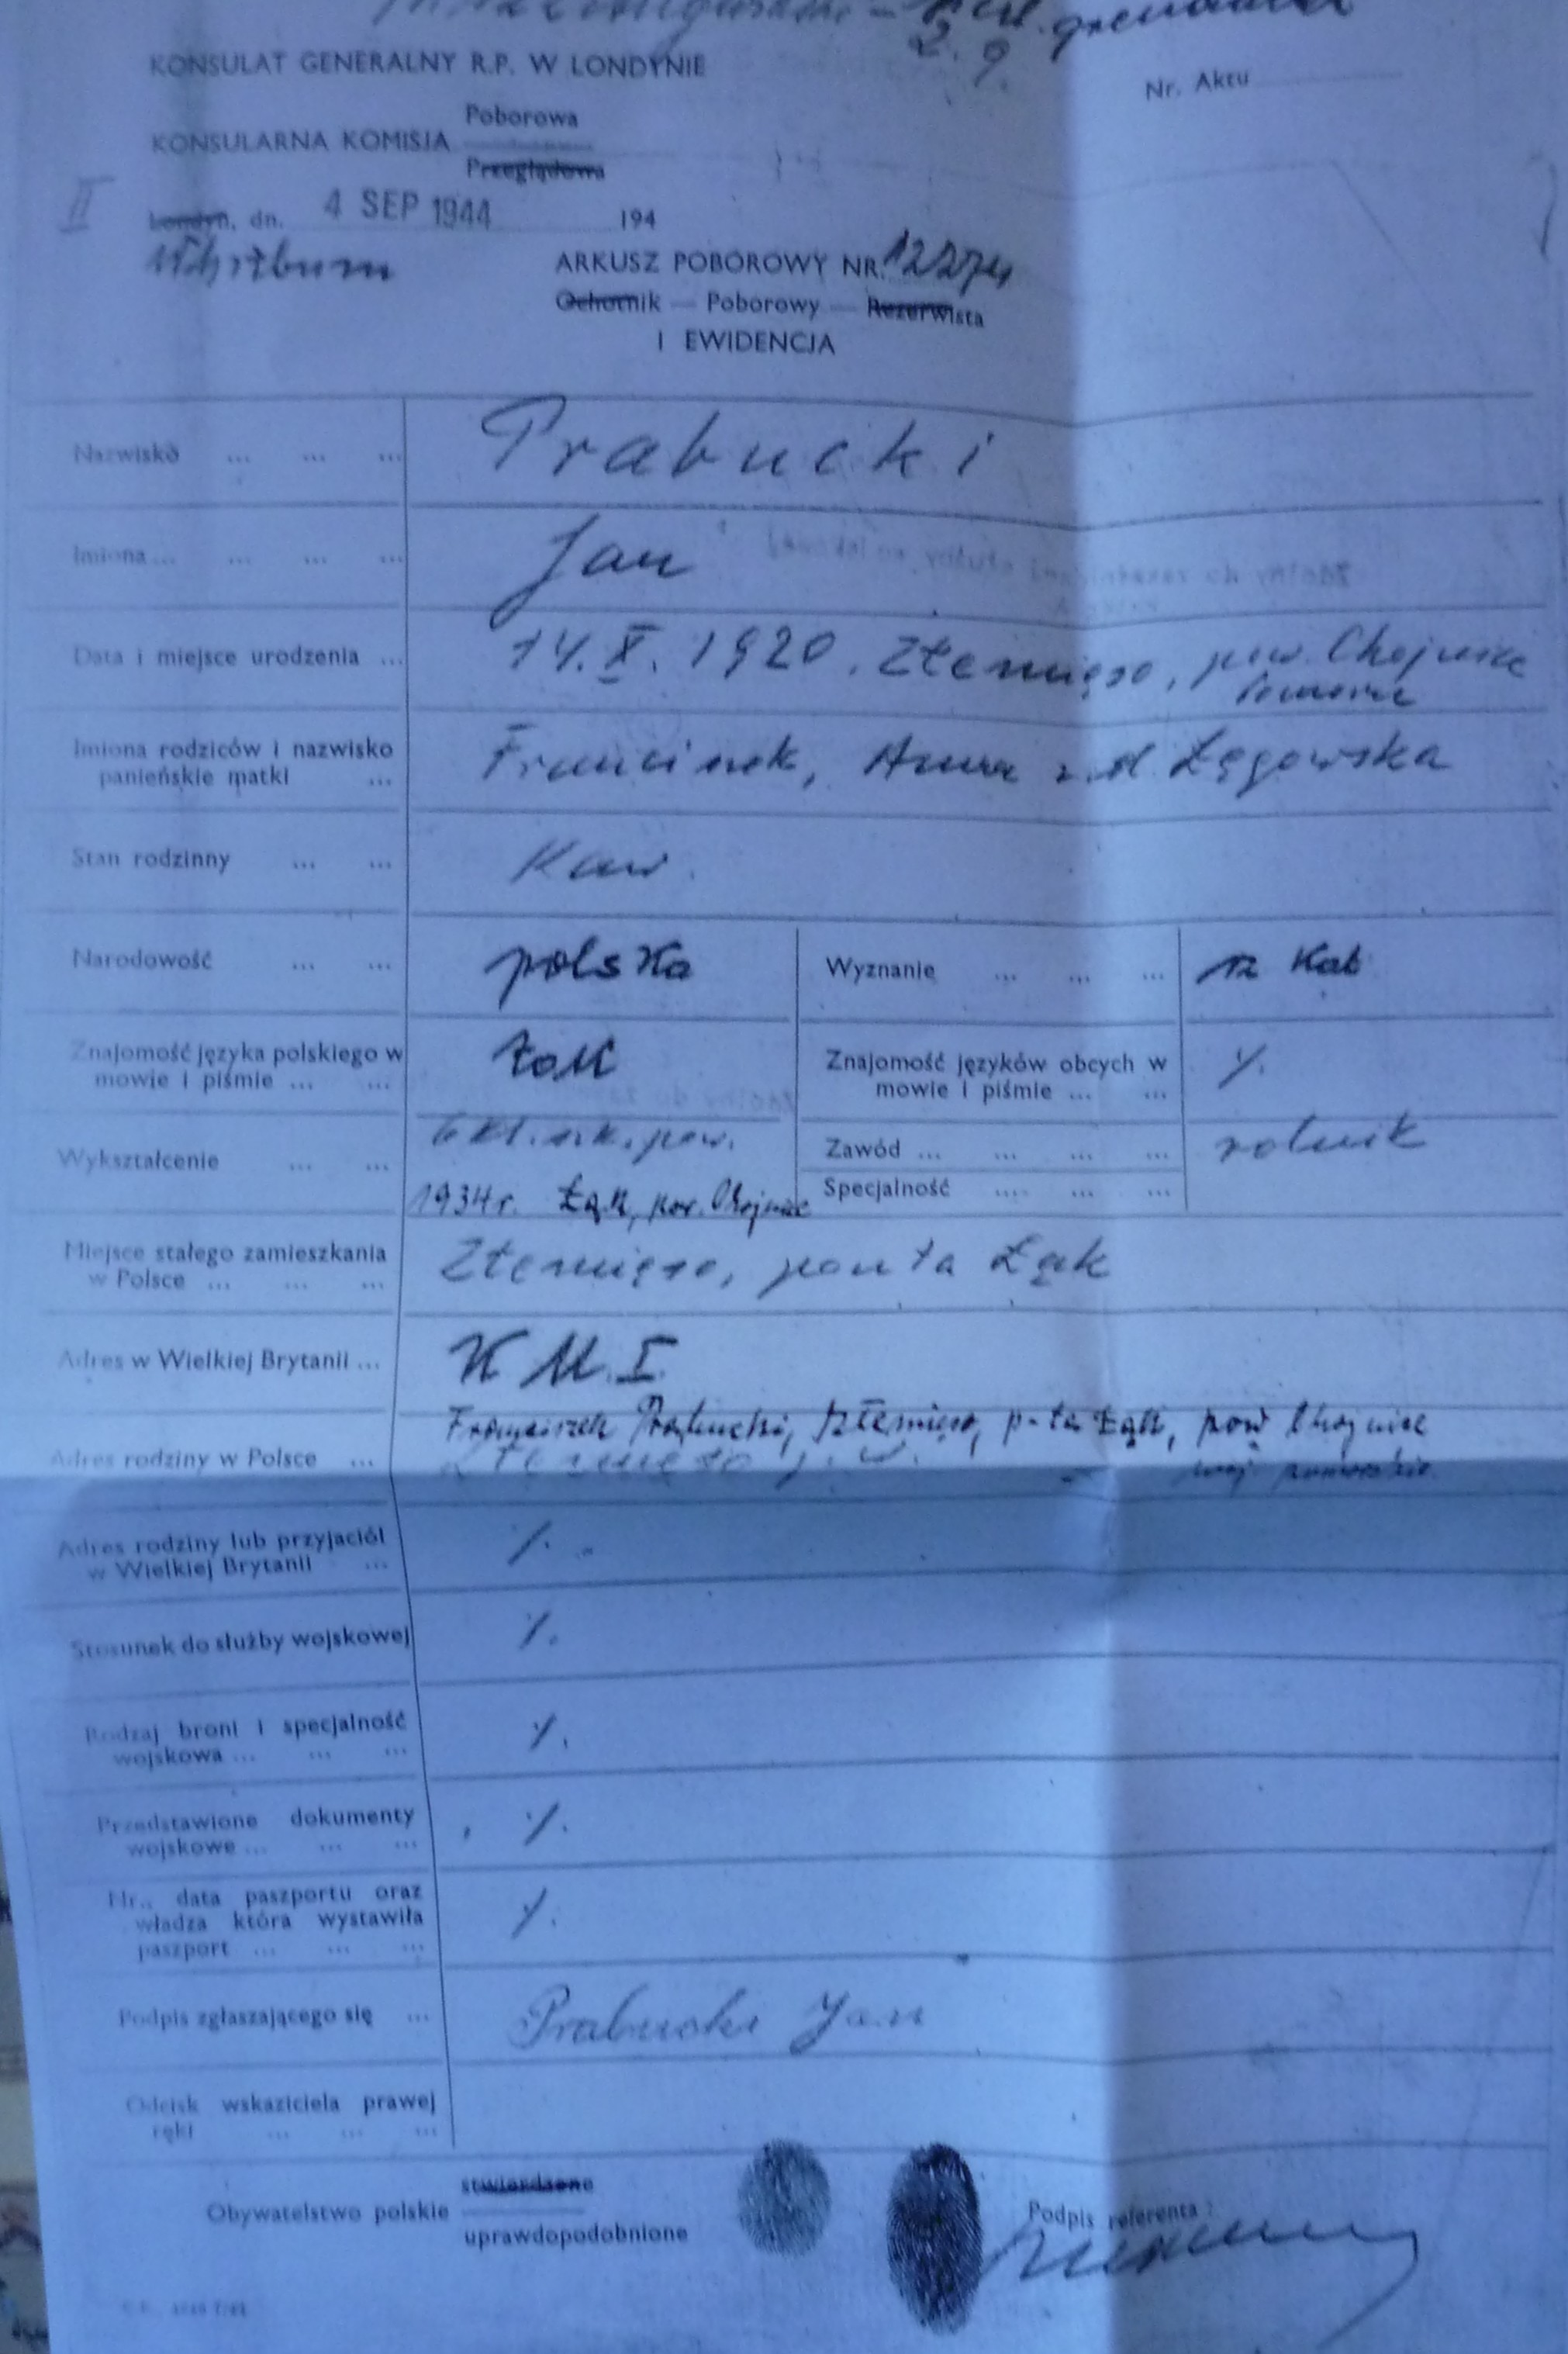 KONSULAT GENERALNY R.P. W LONDYNIE
2. 9.
Nr. Aktu
KONSULARNA KOMISJA Poborowa
Przeglądowa
II
Londyn, dn. 4 SEP 1944 194
ARKUSZ POBOROWY NR. 12274
Ochotnik — Poborowy — Rezerwista
I EWIDENCJA
Nazwisko ... ... ... Prabucki
Imiona ... ... ... ... Jan
Data i miejsce urodzenia ... 14. X. 1920. pow. Chojnice
Imiona rodziców i nazwisko
panieńskie matki ... Franciszek, Anna z d. Łęgowska
Stan rodzinny ... ... Kaw.
Narodowość ... ... polska Wyznanie ... ... ... rz Kat
Znajomość języka polskiego w
mowie i piśmie ... ... Znajomość języków obcych w
mowie i piśmie ... ... ·/.
Wykształcenie ... ... 6 kl. szk. pow. Zawód ... ... ... ... rolnik
1934 r. Łąk, pow. Chojnice Specjalność ... ... ...
Miejsce stałego zamieszkania
w Polsce ... ... ... poczta Łąk
Adres w Wielkiej Brytanii ... K M. I.
Franciszek Prabucki, p-ta Łąk, pow Chojnice
Adres rodziny w Polsce ... j. w. woj. pomorskie
Adres rodziny lub przyjaciół
w Wielkiej Brytanii ... ·/.
Stosunek do służby wojskowej ·/.
Rodzaj broni i specjalność
wojskowa ... ... ... ·/.
Przedstawione dokumenty
wojskowe ... ... ... ·/.
Nr., data paszportu oraz
władza która wystawiła
paszport ... ... ... ·/.
Podpis zgłaszającego się ... Prabucki Jan
Odcisk wskaziciela prawej
ręki ... ... ...
Obywatelstwo polskie stwierdzone
uprawdopodobnione
Podpis referenta :